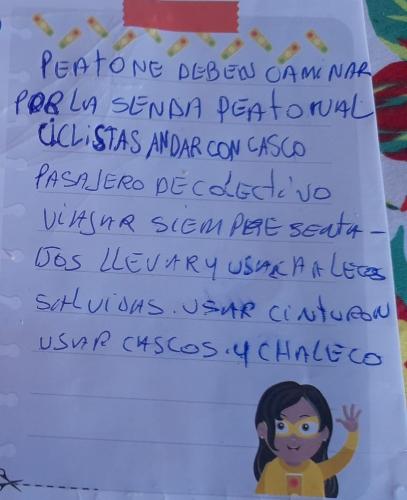 PEATONE DEBEN CAMINAR
POR LA SENDA PEATONAL
CICLISTAS ANDAR CON CASCO
PASAJERO DE COLECTIVO
VIAJAR SIEMPRE SENTA-
DOS LLEVAR Y USAR
SALVIDAS. USAR CINTURON
USAR CASCOS. Y CHALECO